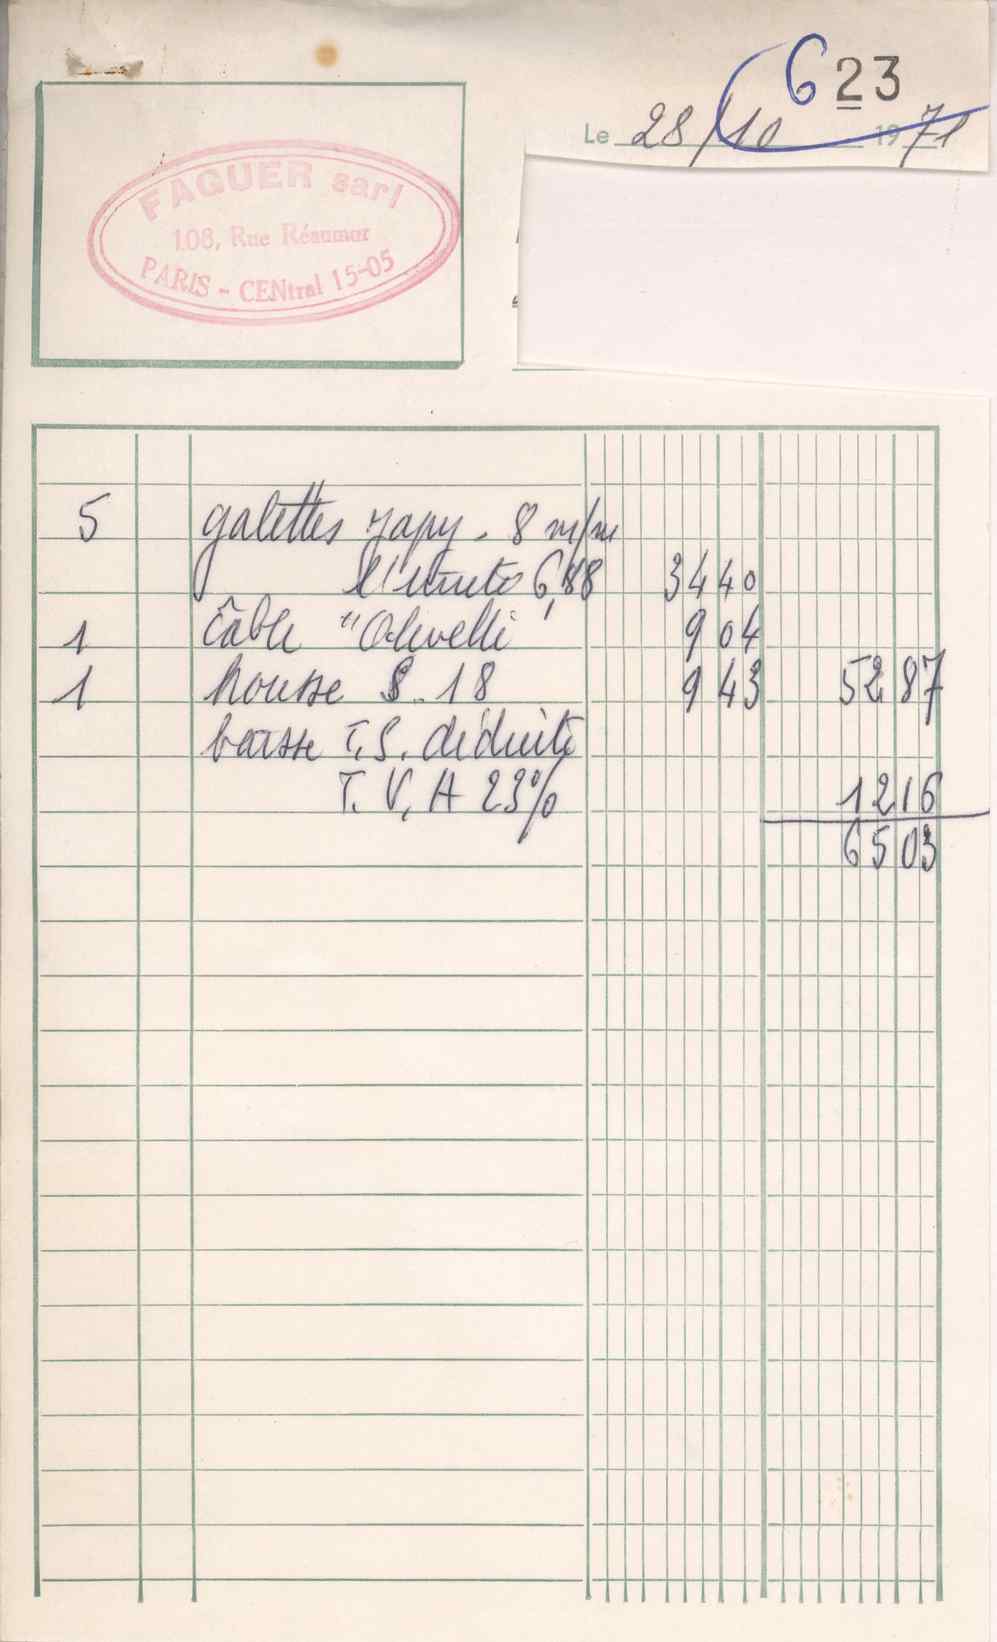 623
Le 28/10 1971
FAGUER sarl
108, Rue Réaumur
PARIS - CENtral 15-05
5 galettes Japy - 8 m/m
l'unité 6,88 34 40
1 Câble "Olivetti" 9 04
1 housse S. 18 9 43 52 87
baisse T.S. déduite
T.V.A 23% 12 16
65 03